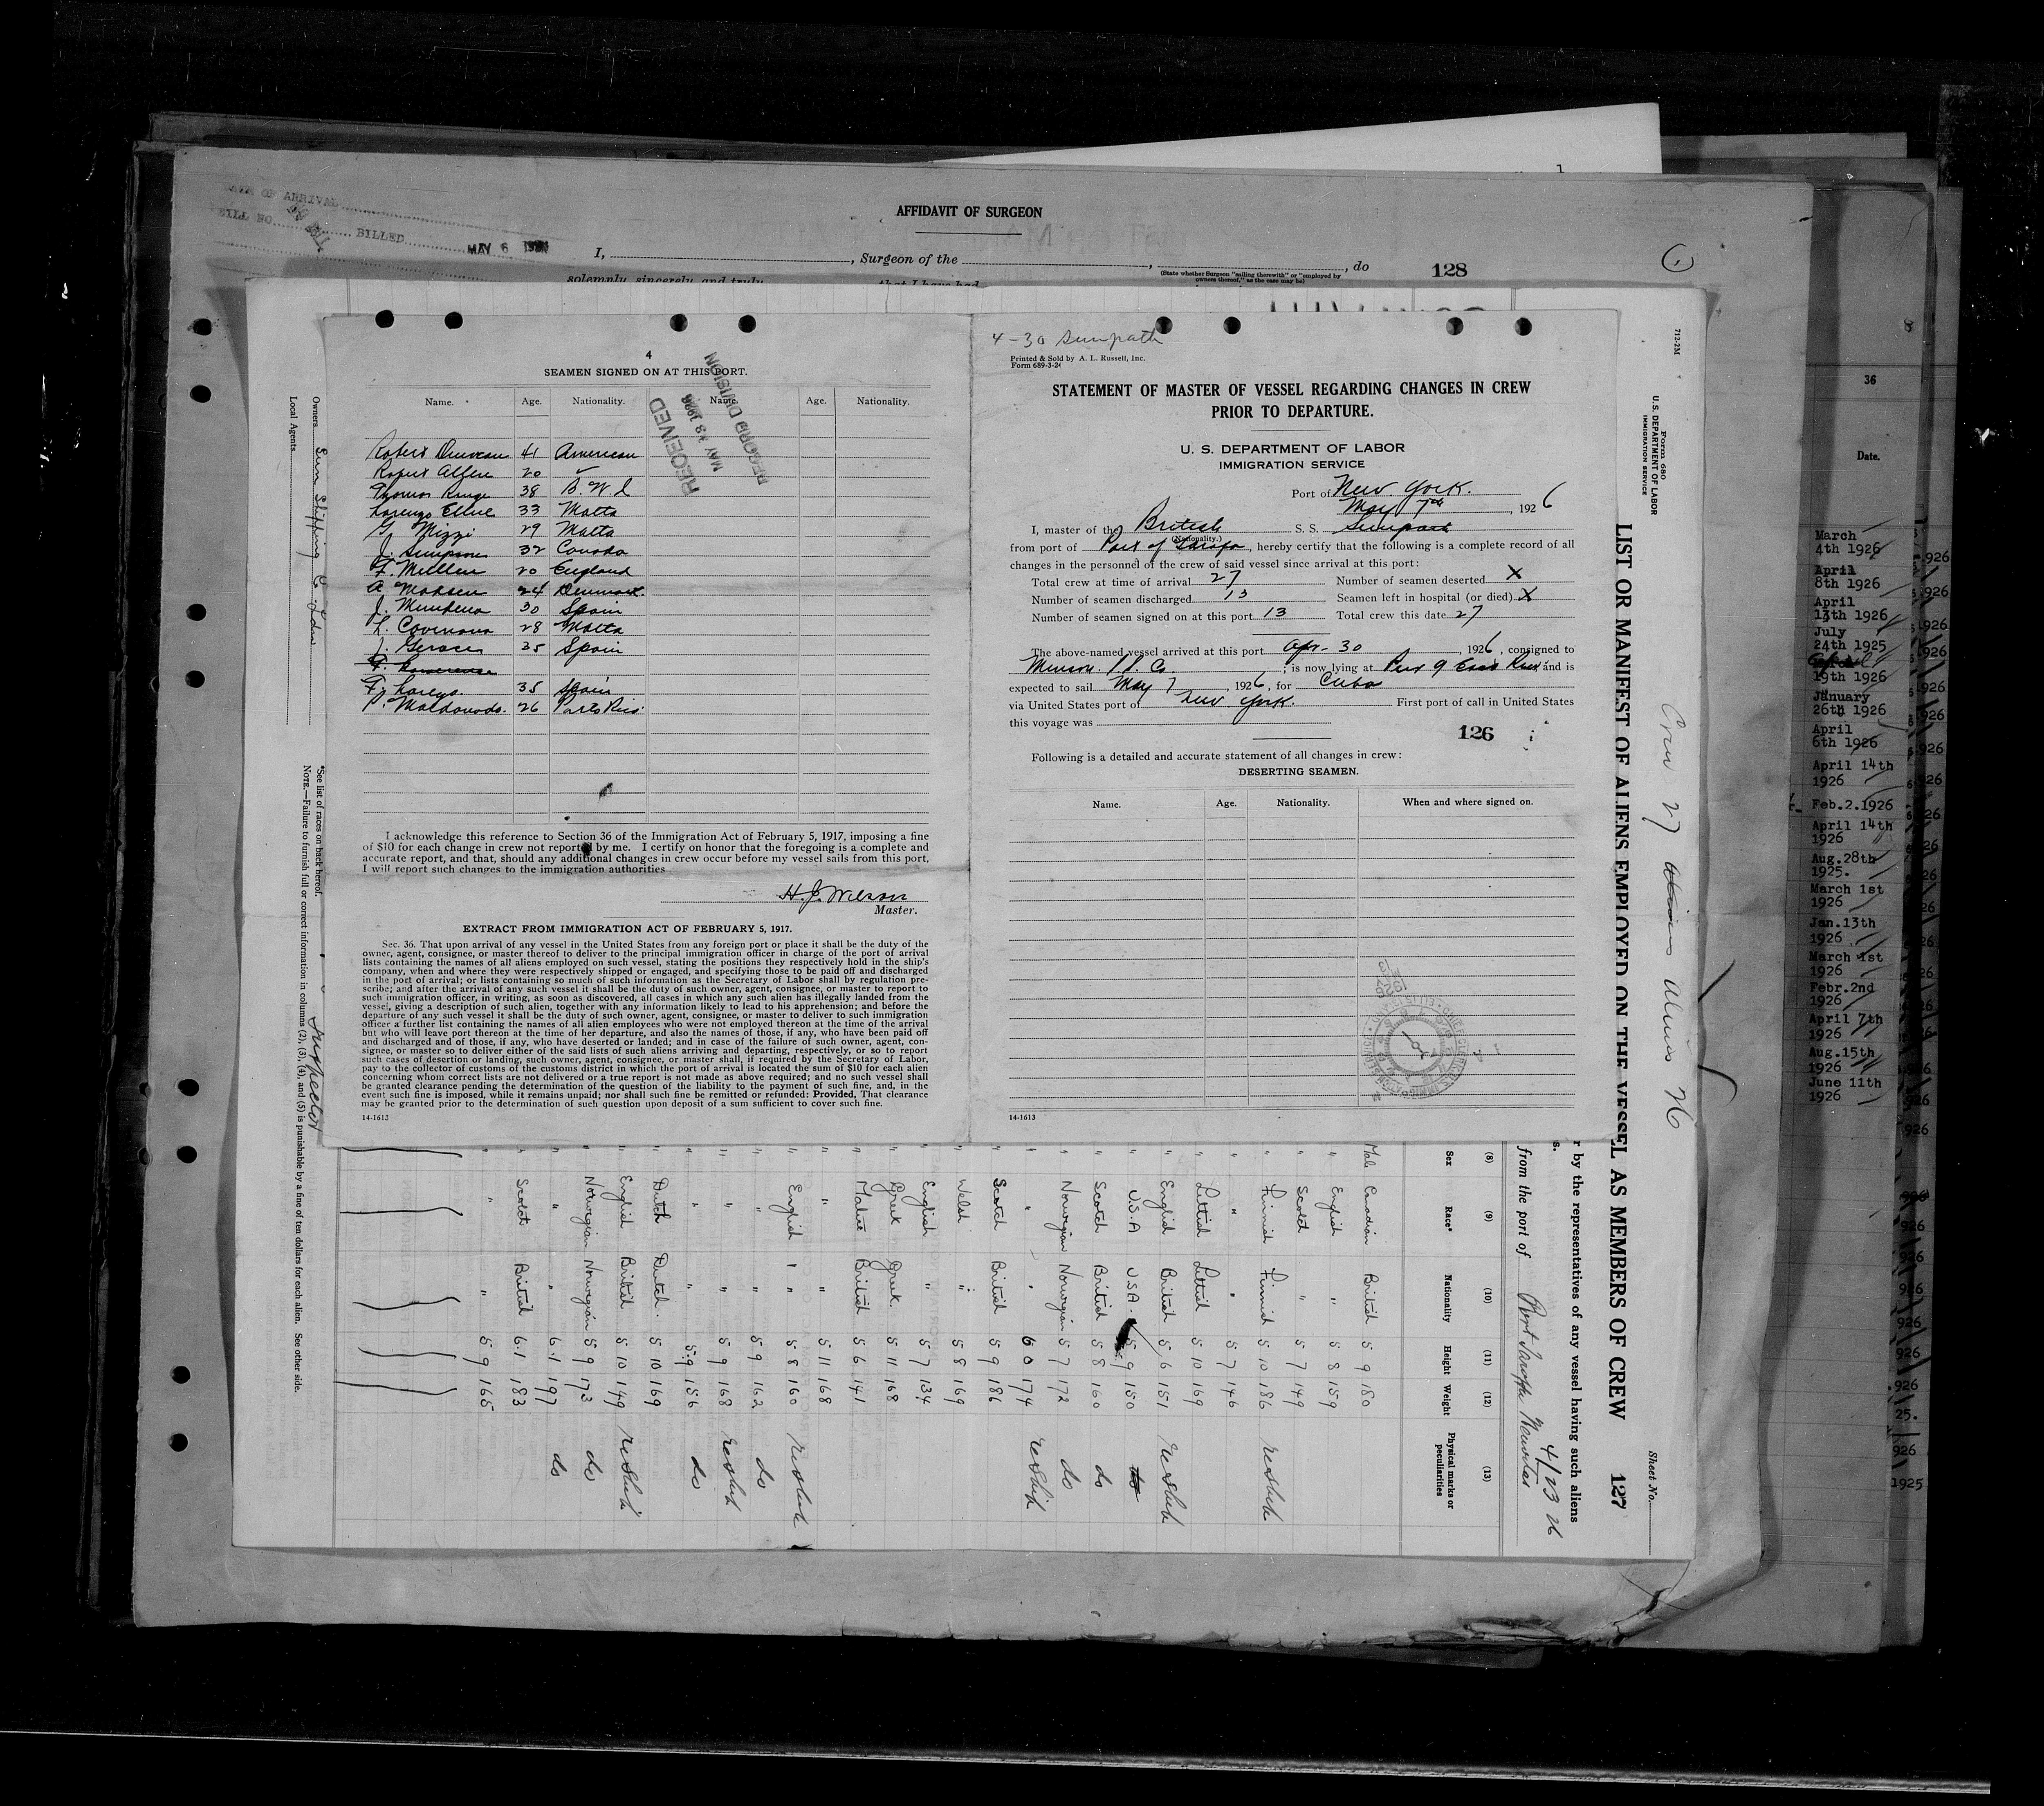 DATE OF ARRIVAL
BILL NO. BILLED MAY 6
AFFIDAVIT OF SURGEON
I, , Surgeon of the , , do
(State whether Surgeon "sailing therewith" or "employed by
owners thereof," as the case may be)
128
solemnly, sincerely, and truly that I have had
4
SEAMEN SIGNED ON AT THIS PORT.
RECEIVED
MAY 1926
RECORD DIVISION
Name. Age. Nationality. Name. Age. Nationality.
Robert 41 American
20
Thomas 38 B. W. I
Lorenzo 33 Malta
G Mizzi 29 Malta
J. Simpson 32 Canada
F. Mullen 20 England
A Madsen 24 Denmark.
J. 30 Spain
L. 28 Malta
J. 35 Spain
F. 35 Spain
P. Maldonado. 26 Porto Rico.
I acknowledge this reference to Section 36 of the Immigration Act of February 5, 1917, imposing a fine
of $10 for each change in crew not reported by me. I certify on honor that the foregoing is a complete and
accurate report, and that, should any additional changes in crew occur before my vessel sails from this port,
I will report such changes to the immigration authorities
H. J. Wilson
Master.
EXTRACT FROM IMMIGRATION ACT OF FEBRUARY 5, 1917.
Sec. 36. That upon arrival of any vessel in the United States from any foreign port or place it shall be the duty of the
owner, agent, consignee, or master thereof to deliver to the principal immigration officer in charge of the port of arrival
lists containing the names of all aliens employed on such vessel, stating the positions they respectively hold in the ship's
company, when and where they were respectively shipped or engaged, and specifying those to be paid off and discharged
in the port of arrival; or lists containing so much of such information as the Secretary of Labor shall by regulation pre-
scribe; and after the arrival of any such vessel it shall be the duty of such owner, agent, consignee, or master to report to
such immigration officer, in writing, as soon as discovered, all cases in which any such alien has illegally landed from the
vessel, giving a description of such alien, together with any information likely to lead to his apprehension; and before the
departure of any such vessel it shall be the duty of such owner, agent, consignee, or master to deliver to such immigration
officer a further list containing the names of all alien employees who were not employed thereon at the time of the arrival
but who will leave port thereon at the time of her departure, and also the names of those, if any, who have been paid off
and discharged and of those, if any, who have deserted or landed; and in case of the failure of such owner, agent, con-
signee, or master so to deliver either of the said lists of such aliens arriving and departing, respectively, or so to report
such cases of desertion or landing, such owner, agent, consignee, or master shall, if required by the Secretary of Labor,
pay to the collector of customs of the customs district in which the port of arrival is located the sum of $10 for each alien
concerning whom correct lists are not delivered or a true report is not made as above required; and no such vessel shall
be granted clearance pending the determination of the question of the liability to the payment of such fine, and, in the
event such fine is imposed, while it remains unpaid; nor shall such fine be remitted or refunded: Provided, That clearance
may be granted prior to the determination of such question upon deposit of a sum sufficient to cover such fine.
14-1613
4-30 Sunpath
Printed & Sold by A. L. Russell, Inc.
Form 689-3-26
STATEMENT OF MASTER OF VESSEL REGARDING CHANGES IN CREW
PRIOR TO DEPARTURE.
U. S. DEPARTMENT OF LABOR
IMMIGRATION SERVICE
Port of New York.
May 7th, 1926
I, master of the British S. S. Sunpath
(Nationality.)
from port of Port of , hereby certify that the following is a complete record of all
changes in the personnel of the crew of said vessel since arrival at this port:
Total crew at time of arrival 27 Number of seamen deserted X
Number of seamen discharged 13 Seamen left in hospital (or died) X
Number of seamen signed on at this port 13 Total crew this date 27
The above-named vessel arrived at this port Apr-30, 1926, consigned to
Munson S.S. Co ; is now lying at Pier 9 East River and is
expected to sail May 7, 1926, for Cuba
via United States port of New York. First port of call in United States
this voyage was
126
Following is a detailed and accurate statement of all changes in crew:
DESERTING SEAMEN.
Name. Age. Nationality. When and where signed on.
14-1613
712-2M
Form 680
U. S. DEPARTMENT OF LABOR
IMMIGRATION SERVICE
Sheet No.
Crew 27 Aliens 26
LIST OR MANIFEST OF ALIENS EMPLOYED ON THE VESSEL AS MEMBERS OF CREW 127
r by the representatives of any vessel having such aliens
from the port of 4/23 26
(8) (9) (10) (11) (12) (13)
Sex Race* Nationality Height Weight Physical marks or peculiarities
Male Canadian British 5 9 180
" English " 5 8 159
" Scotch " 5 7 149
" Finnish Finnish 5 10 186 reship
" " " 5 7 146
" Lettish Lettish 5 10 169
English British 5 6 151 reship
U.S.A U.S.A. 5 9 150
" Scotch British 5 8 160 do
" Norwegian Norwegian 5 7 172 do
" " " 6 0 174 reship
" Scotch British 5 9 186
" Welsh " 5 8 169
" English " 5 7 134
" Greek Greek. 5 11 168
" Maltese British 5 6 141
" " " 5 11 168
" English " 5 8 160 reship
" " " 5 9 162 do
" " " 5 9 168 reship
" " " 5.9 156 do
" Dutch Dutch. 5 10 169
" English British 5 10 149 reship
" Norwegian Norwegian 5 9 173 do
" " " 6.1 197 do
" Scotch British 6.1 183
" " " 5 9 165
Owners Sun Shipping Co Ltd
Local Agents
*See list of races on back hereof.
NOTE.—Failure to furnish full or correct information in columns (2), (3), (4), and (5) is punishable by a fine of ten dollars for each alien. See other side.
Inspector
36
Date.
March
4th 1926
April
8th 1926
April
13th 1926
July
24th 1925
19th 1926
January
26th 1926
April
6th 1926
April 14th
1926
Feb.2.1926
April 14th
1926
Aug.28th
1925.
March 1st
1926
Jan.13th
1926
March 1st
1926
Febr.2nd
1926
April 7th
1926
Aug.15th
1926
June 11th
1926